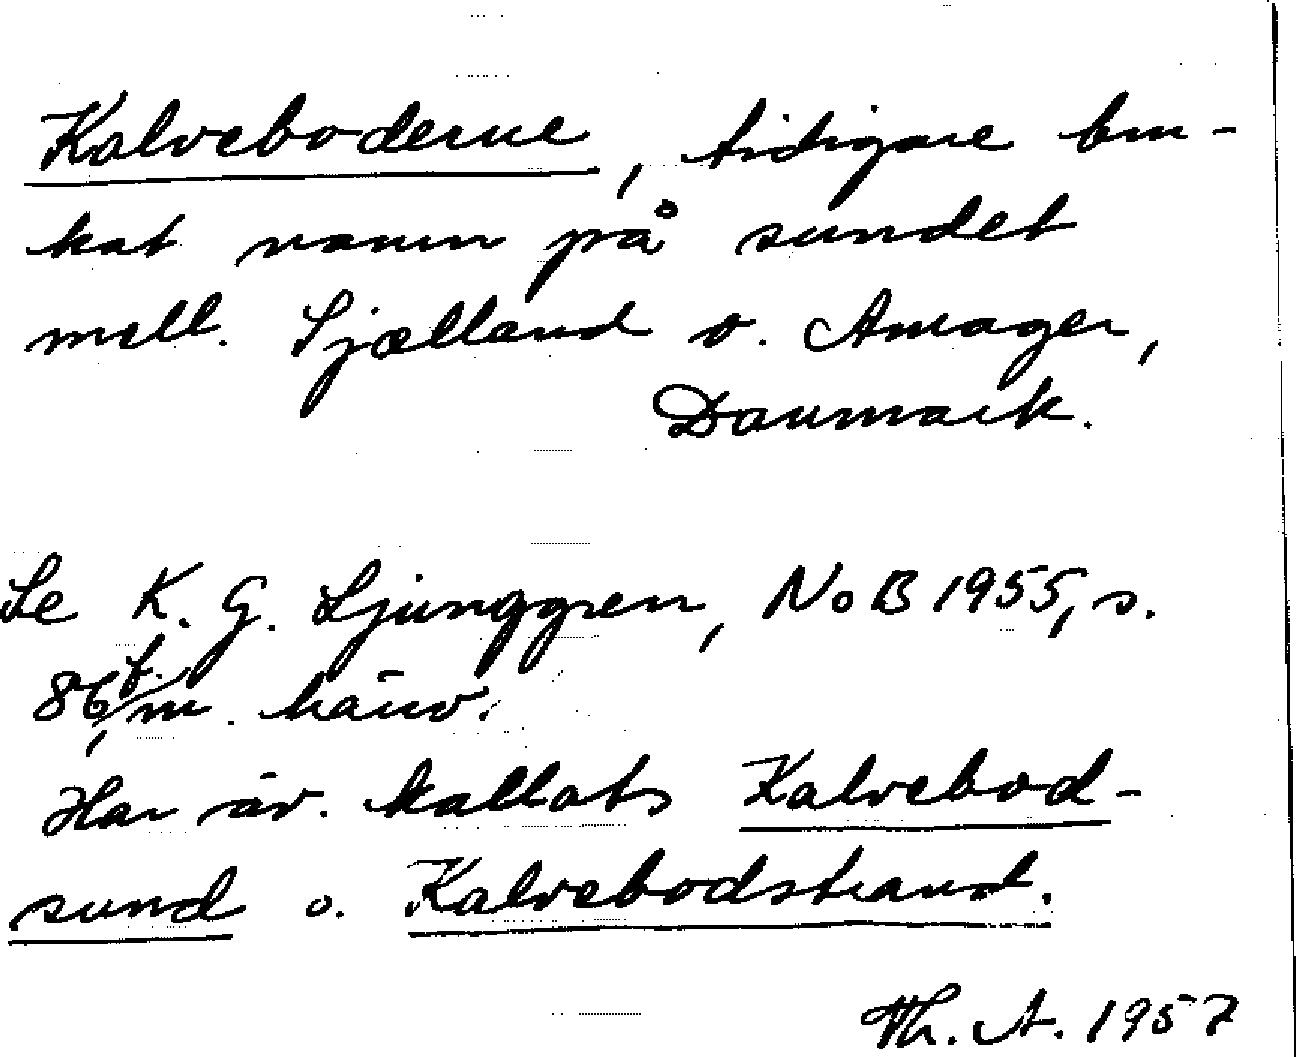 Kalveboderne, tidigare bru-
kat namn på sundet
mell. Sjælland o. Amager,
Danmark.
Se K. G. Ljunggren, NoB 1955, s.
86, f. m. hänv.
Har äv. kallats Kalvebod-
sund o. Kalvebodstrand.
Th. A. 1957